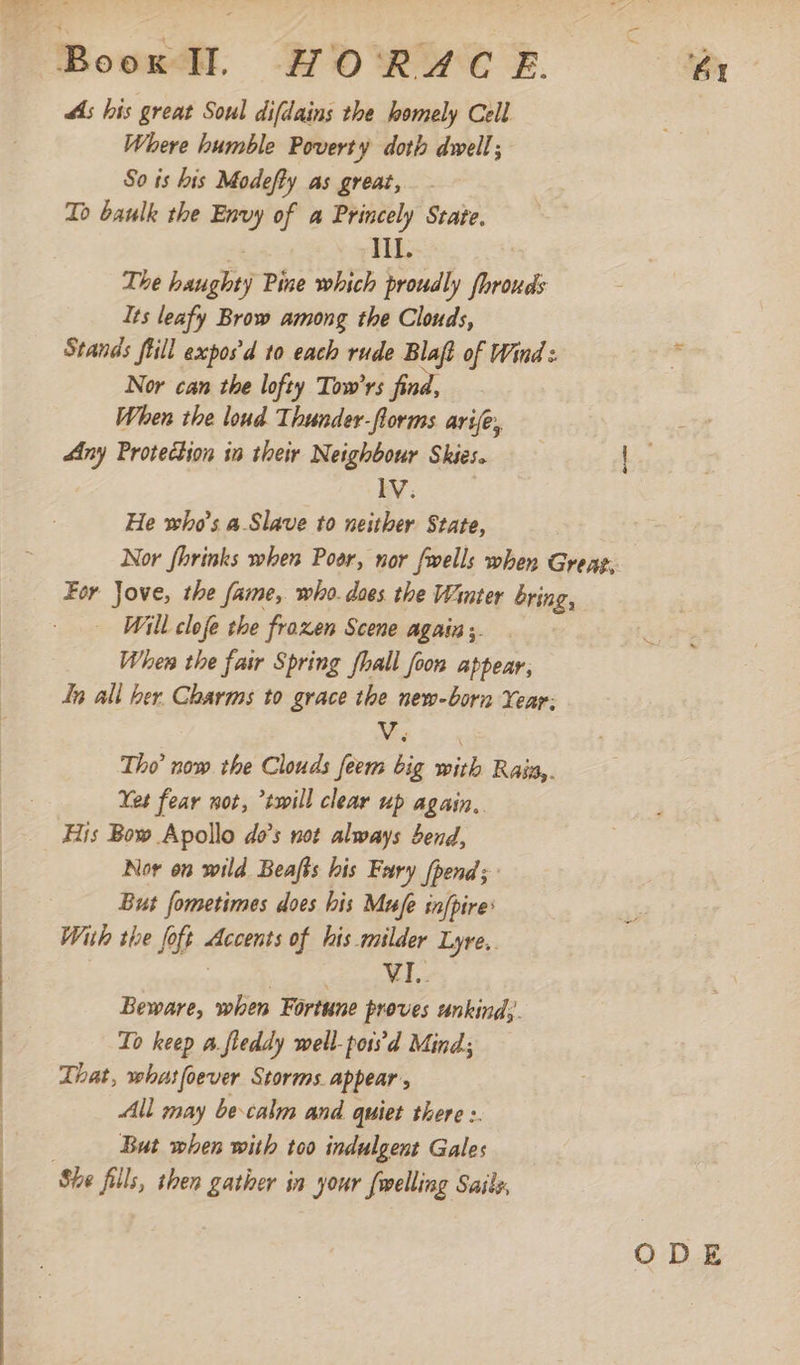 Book II. HORACE. 61
As his great Soul diſdains the homely Cell
Where humble Poverty doth dwell;
So is his Modeſty as great,
To baulk the Envy of a Princely State.
III.
The haughty Pine which proudly ſhrouds
Its leafy Brow among the Clouds,
Stands ſtill expos'd to each rude Blaſt of Wind:
Nor can the lofty Tow'rs find,
When the loud Thunder-ſtorms ariſe,
Any Protection in their Neighbour Skies.
IV.
He who's a Slave to neither State,
Nor ſhrinks when Poor, nor ſwells when Great,
For Jove, the ſame, who does the Winter bring,
Will cloſe the frozen Scene again;
When the fair Spring ſhall ſoon appear,
In all her Charms to grace the new-born Year.
V.
Tho' now the Clouds ſeem big with Rain,
Yet fear not, 'twill clear up again.
His Bow Apollo do's not always bend,
Nor on wild Beaſts his Fury ſpend;
But ſometimes does his Muſe inſpire
With the ſoft Accents of his milder Lyre.
VI.
Beware, when Fortune proves unkind,
To keep a ſteddy well-pois'd Mind;
That, whatſoever Storms appear,
All may be calm and quiet there:
But when with too indulgent Gales
She fills, then gather in your ſwelling Sails,
ODE